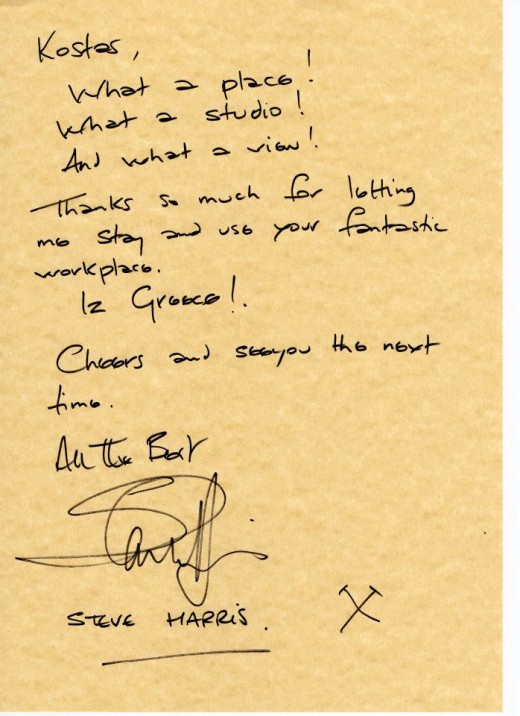 Kostas,
What a place!
What a studio!
And what a view!
Thanks so much for letting
me stay and use your fantastic
workplace.
Iz Greece!.
Cheers and seeyou the next
time.
All the Best
STEVE HARRIS.
X